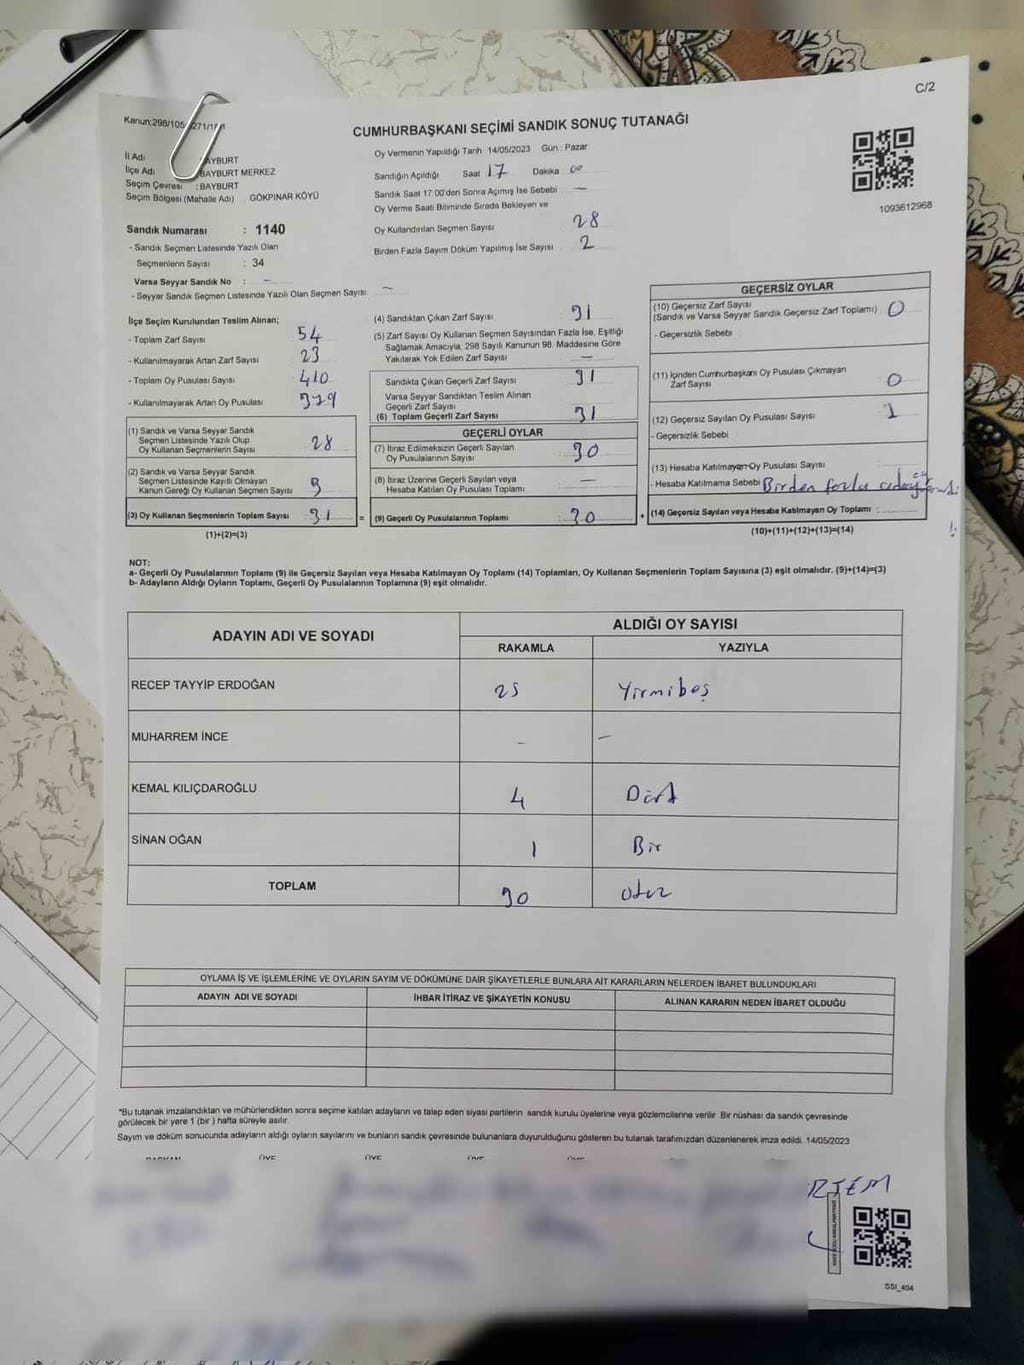 C/2
CUMHURBAŞKANI SEÇİMİ SANDIK SONUÇ TUTANAĞI
İl Adı BAYBURT
İlçe Adı BAYBURT MERKEZ
Seçim Çevresi : BAYBURT
Seçim Bölgesi (Mahalle Adı) GÖKPINAR KÖYÜ
Sandık Numarası : 1140
- Sandık Seçmen Listesinde Yazılı Olan
Seçmenlerin Sayısı : 34
Varsa Seyyar Sandık No : -
- Seyyar Sandık Seçmen Listesinde Yazılı Olan Seçmen Sayısı: -
Oy Vermenin Yapıldığı Tarih 14/05/2023 Gün : Pazar
Sandığın Açıldığı Saat 17 Dakika 00
Sandık Saat 17:00'den Sonra Açılmış İse Sebebi -
Oy Verme Saati Bitiminde Sırada Bekleyen ve
Oy Kullandırılan Seçmen Sayısı 28
Birden Fazla Sayım Döküm Yapılmış İse Sayısı 2
1093612968
İlçe Seçim Kurulundan Teslim Alınan;
- Toplam Zarf Sayısı 54
- Kullanılmayarak Artan Zarf Sayısı 23
- Toplam Oy Pusulası Sayısı 410
- Kullanılmayarak Artan Oy Pusulası 379
(1) Sandık ve Varsa Seyyar Sandık
Seçmen Listesinde Yazılı Olup
Oy Kullanan Seçmenlerin Sayısı 28
(2) Sandık ve Varsa Seyyar Sandık
Seçmen Listesinde Kayıtlı Olmayan
Kanun Gereği Oy Kullanan Seçmen Sayısı 3
(3) Oy Kullanan Seçmenlerin Toplam Sayısı 31 =
(1)+(2)=(3)
(4) Sandıktan Çıkan Zarf Sayısı 31
(5) Zarf Sayısı Oy Kullanan Seçmen Sayısından Fazla İse, Eşitliği
Sağlamak Amacıyla, 298 Sayılı Kanunun 98. Maddesine Göre
Yakılarak Yok Edilen Zarf Sayısı -
Sandıkta Çıkan Geçerli Zarf Sayısı 31
Varsa Seyyar Sandıktan Teslim Alınan
Geçerli Zarf Sayısı
(6) Toplam Geçerli Zarf Sayısı 31
GEÇERLİ OYLAR
(7) İtiraz Edilmeksizin Geçerli Sayılan
Oy Pusulalarının Sayısı 30
(8) İtiraz Üzerine Geçerli Sayılan veya
Hesaba Katılan Oy Pusulası Toplamı -
(9) Geçerli Oy Pusulalarının Toplamı 30 +
GEÇERSİZ OYLAR
(10) Geçersiz Zarf Sayısı
(Sandık ve Varsa Seyyar Sandık Geçersiz Zarf Toplamı) 0
- Geçersizlik Sebebi
(11) İçinden Cumhurbaşkanı Oy Pusulası Çıkmayan
Zarf Sayısı 0
(12) Geçersiz Sayılan Oy Pusulası Sayısı 1
- Geçersizlik Sebebi
(13) Hesaba Katılmayan Oy Pusulası Sayısı
- Hesaba Katılmama Sebebi Birden fazla
(14) Geçersiz Sayılan veya Hesaba Katılmayan Oy Toplamı :
(10)+(11)+(12)+(13)=(14)
NOT:
a- Geçerli Oy Pusulalarının Toplamı (9) ile Geçersiz Sayılan veya Hesaba Katılmayan Oy Toplamı (14) Toplamları, Oy Kullanan Seçmenlerin Toplam Sayısına (3) eşit olmalıdır. (9)+(14)=(3)
b- Adayların Aldığı Oyların Toplamı, Geçerli Oy Pusulalarının Toplamına (9) eşit olmalıdır.
ADAYIN ADI VE SOYADI
ALDIĞI OY SAYISI
RAKAMLA YAZIYLA
RECEP TAYYİP ERDOĞAN 25 Yirmibeş
MUHARREM İNCE - -
KEMAL KILIÇDAROĞLU 4 Dört
SİNAN OĞAN 1 Bir
TOPLAM 30 otuz
OYLAMA İŞ VE İŞLEMLERİNE VE OYLARIN SAYIM VE DÖKÜMÜNE DAİR ŞİKAYETLERLE BUNLARA AİT KARARLARIN NELERDEN İBARET BULUNDUKLARI
ADAYIN ADI VE SOYADI İHBAR İTİRAZ VE ŞİKAYETİN KONUSU ALINAN KARARIN NEDEN İBARET OLDUĞU
*Bu tutanak imzalandıktan ve mühürlendikten sonra seçime katılan adayların ve talep eden siyasi partilerin sandık kurulu üyelerine veya gözlemcilerine verilir. Bir nüshası da sandık çevresinde
görülecek bir yere 1 (bir) hafta süreyle asılır.
Sayım ve döküm sonucunda adayların aldığı oyların sayılarını ve bunların sandık çevresinde bulunanlara duyurulduğunu gösteren bu tutanak tarafımızdan düzenlenerek imza edildi. 14/05/2023
BAŞKAN ÜYE ÜYE ÜYE ÜYE
SSI_404